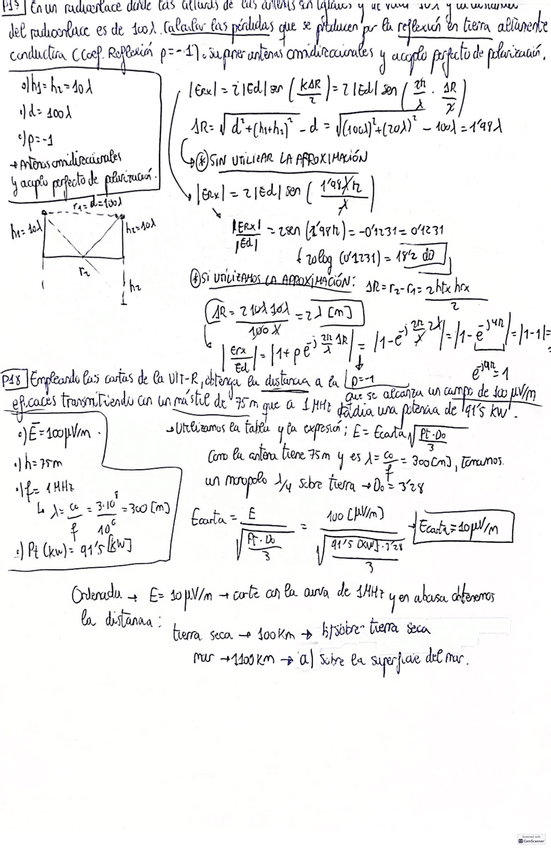 P17 En un radioenlace donde las alturas de las antenas son iguales y de valor 10λ y la distancia
del radioenlace es de 100λ. Calcular las pérdidas que se producen por la reflexión en tierra altamente
conductora (Coef. Reflexión ρ=-1). Suponer antenas omnidireccionales y acoplo perfecto de polarización.
•) h1=h2=10λ
•) d=100λ
•) ρ=-1
→ Antenas omnidireccionales
y acoplo perfecto de polarización.
r1=d=100λ
h1=10λ
h2=10λ
r2
h2
|Erx| = 2|Ed| sen (KΔR/2) = 2|Ed| sen (2π/λ · ΔR/2)
ΔR = √(d²+(h1+h2)²) - d = √((100λ)²+(20λ)²) - 100λ = 1'98λ
* SIN UTILIZAR LA APROXIMACIÓN
|Erx| = 2|Ed| sen (1'98λπ/λ)
|Erx|/|Ed| = 2sen (1'98π) = -0'1231 = 0'1231
20log (0'1231) = 18'2 dB
* SI UTILIZAMOS LA APROXIMACIÓN: ΔR = r2-r1 = 2htx hrx/
ΔR = 2 10λ 10λ/100λ = 2λ [m]
|Erx/Ed| = |1+ρe^(-j 2π/λ ΔR)| = |1-e^(-j 2π/λ 2λ)| = |1-e^(-j4π)| = |1-1| =
ρ=-1
e^(j4π)=1
P18 Empleando las cartas de la UIT-R, obtenga la distancia a la que se alcanza un campo de 100 μV/m
eficaces transmitiendo con un mástil de 75m que a 1MHz radia una potencia de 91'5 kW.
•) E=100μV/m.
•) h=75m
•) f=1MHz
↳ λ = co/f = 3·10⁸/10⁶ = 300 [m]
•) Pt (kW) = 91'5 [kW]
→ Utilizamos la tabla y la expresión: E = Ecarta √(Pt·Do/3)
Como la antena tiene 75m y es λ = co/f = 300[m], tenemos
un monopolo λ/4 sobre tierra → Do = 3'28
Ecarta = E/√(Pt·Do/3) = 100 [μV/m]/√(91'5 [kW]·3'28/3) → Ecarta = 10μV/m
Ordenada → E = 10μV/m → corte con la curva de 1MHz y en abcisa obtenemos
la distancia:
tierra seca → 100Km → b) sobre tierra seca
mar → 1100km → a) Sobre la superficie del mar.
CamScanner